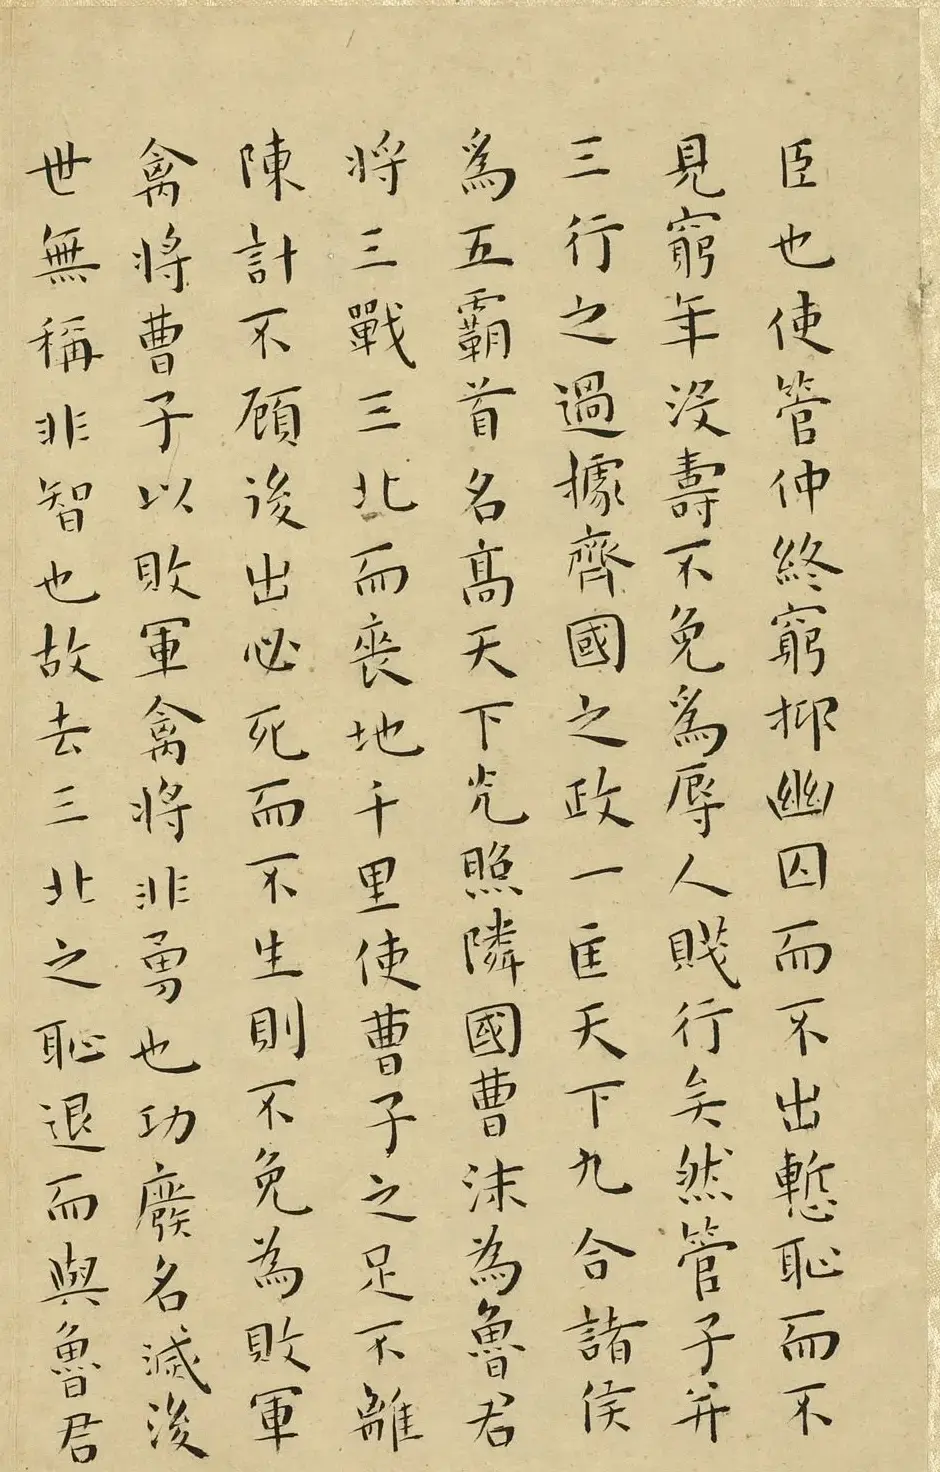 臣也使管仲終窮抑幽囚而不出慙恥而不
見窮年沒壽不免為辱人賤行矣然管子并
三行之過據齊國之政一匡天下九合諸侯
為五霸首名髙天下光照隣國曹沫為魯君
将三戰三北而喪地千里使曹子之足不離
陳計不顧後出必死而不生則不免為敗軍
禽将曹子以敗軍禽将非勇也功廢名滅後
世無稱非智也故去三北之恥退而與魯君